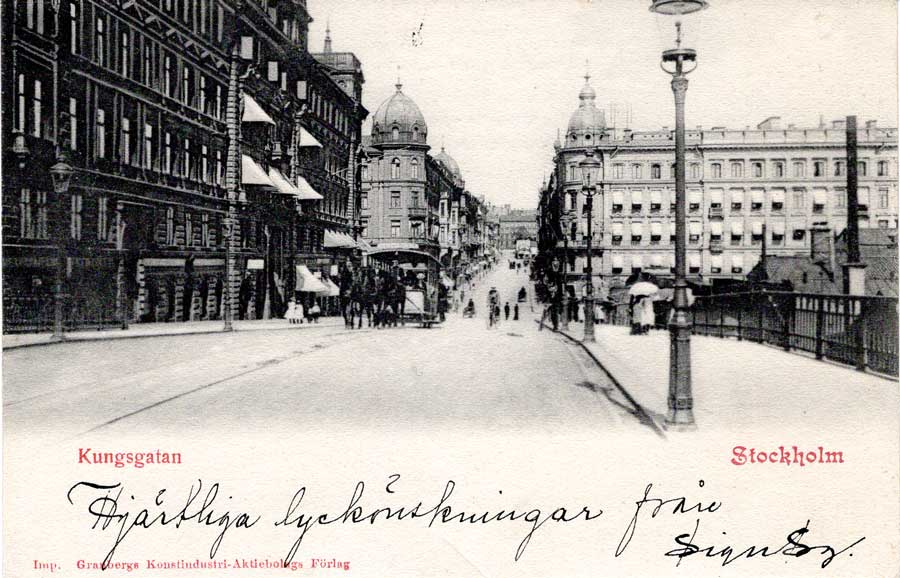 Kungsgatan
Stockholm
Hjärtliga lyckönskningar från
Imp. Granbergs Konstindustri-Aktiebolags Förlag